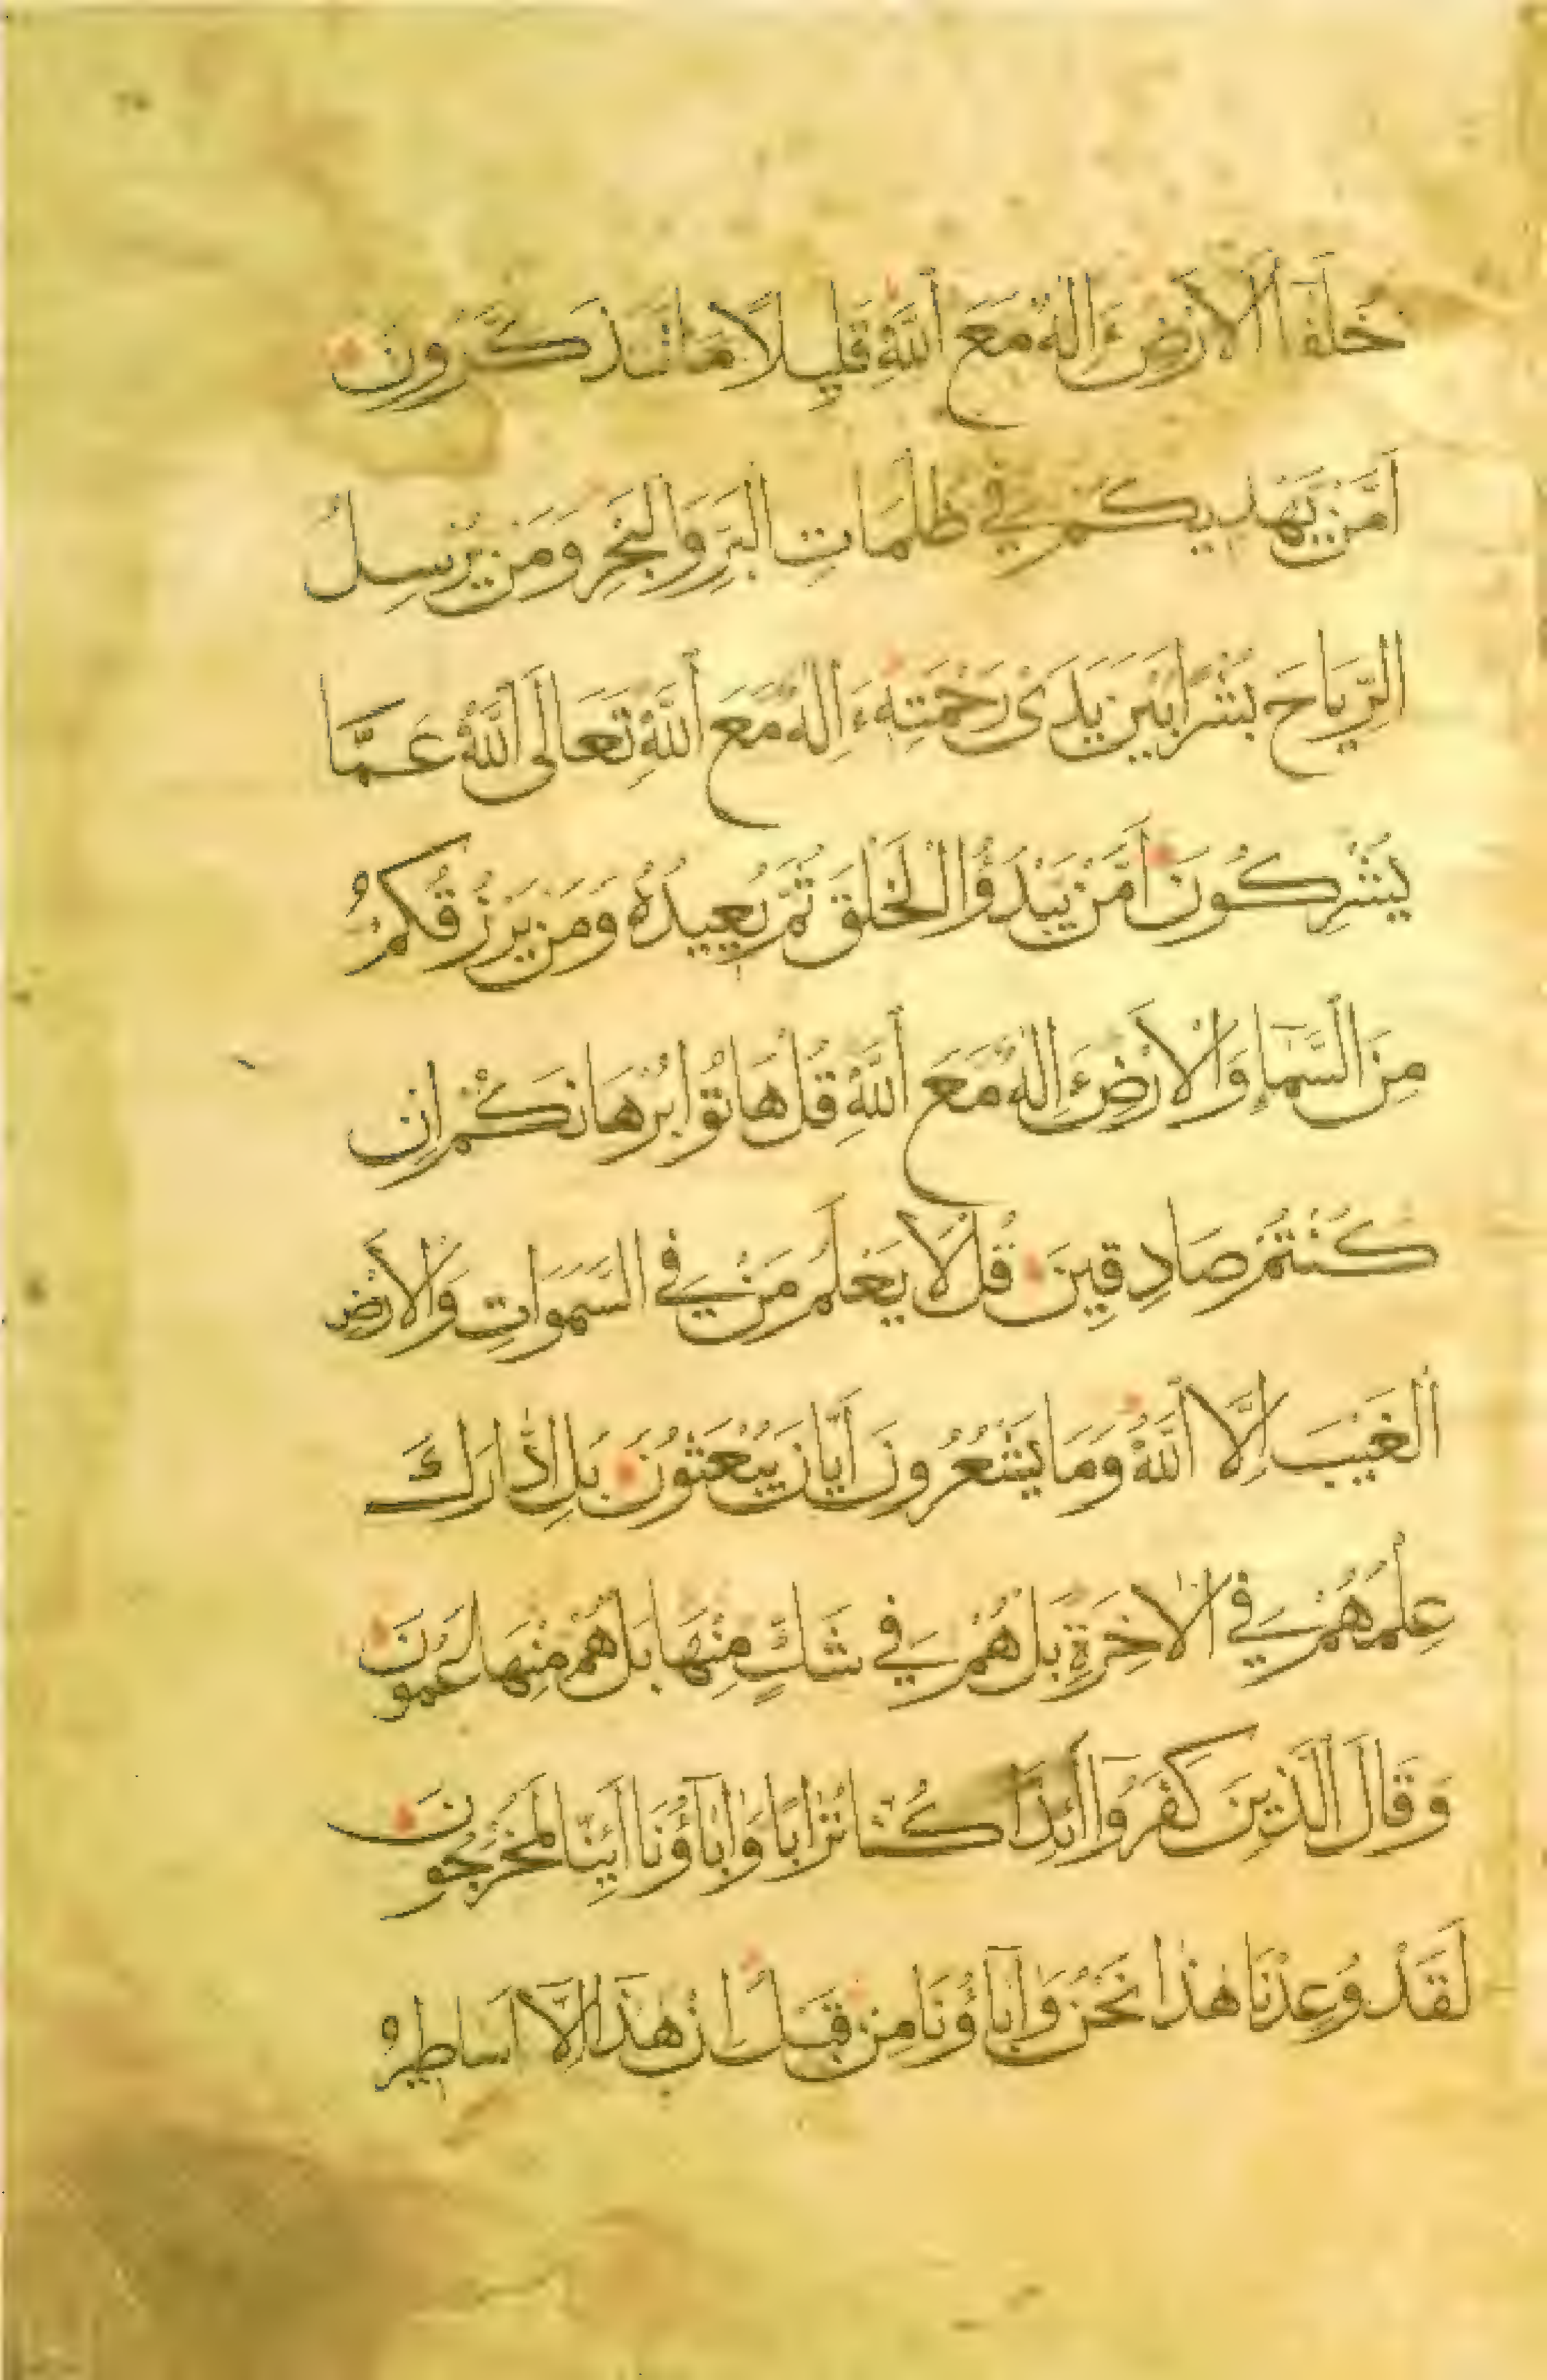 خُلَفَآءَ الْاَرْضِ ءَاِلٰهٌ مَعَ اللّٰهِ قَلِيلًا مَا تَذَكَّرُونَ
اَمَّنْ يَهْدِيكُمْ فِي ظُلُمَاتِ الْبَرِّ وَالْبَحْرِ وَمَنْ يُرْسِلُ
الرِّيَاحَ بُشْرًا بَيْنَ يَدَيْ رَحْمَتِهِ ءَاِلٰهٌ مَعَ اللّٰهِ تَعَالَى اللّٰهُ عَمَّا
يُشْرِكُونَ اَمَّنْ يَبْدَؤُا الْخَلْقَ ثُمَّ يُعِيدُهُ وَمَنْ يَرْزُقُكُمْ
مِنَ السَّمَاءِ وَالْاَرْضِ ءَاِلٰهٌ مَعَ اللّٰهِ قُلْ هَاتُوا بُرْهَانَكُمْ اِنْ
كُنْتُمْ صَادِقِينَ قُلْ لَا يَعْلَمُ مَنْ فِي السَّمٰوَاتِ وَالْاَرْضِ
الْغَيْبَ اِلَّا اللّٰهُ وَمَا يَشْعُرُونَ اَيَّانَ يُبْعَثُونَ بَلِ ادَّارَكَ
عِلْمُهُمْ فِي الْاٰخِرَةِ بَلْ هُمْ فِي شَكٍّ مِنْهَا بَلْ هُمْ مِنْهَا عَمُونَ
وَقَالَ الَّذِينَ كَفَرُوا اَئِذَا كُنَّا تُرَابًا وَاٰبَآؤُنَا اَئِنَّا لَمُخْرَجُونَ
لَقَدْ وُعِدْنَا هٰذَا نَحْنُ وَاٰبَآؤُنَا مِنْ قَبْلُ اِنْ هٰذَا اِلَّا اَسَاطِيرُ